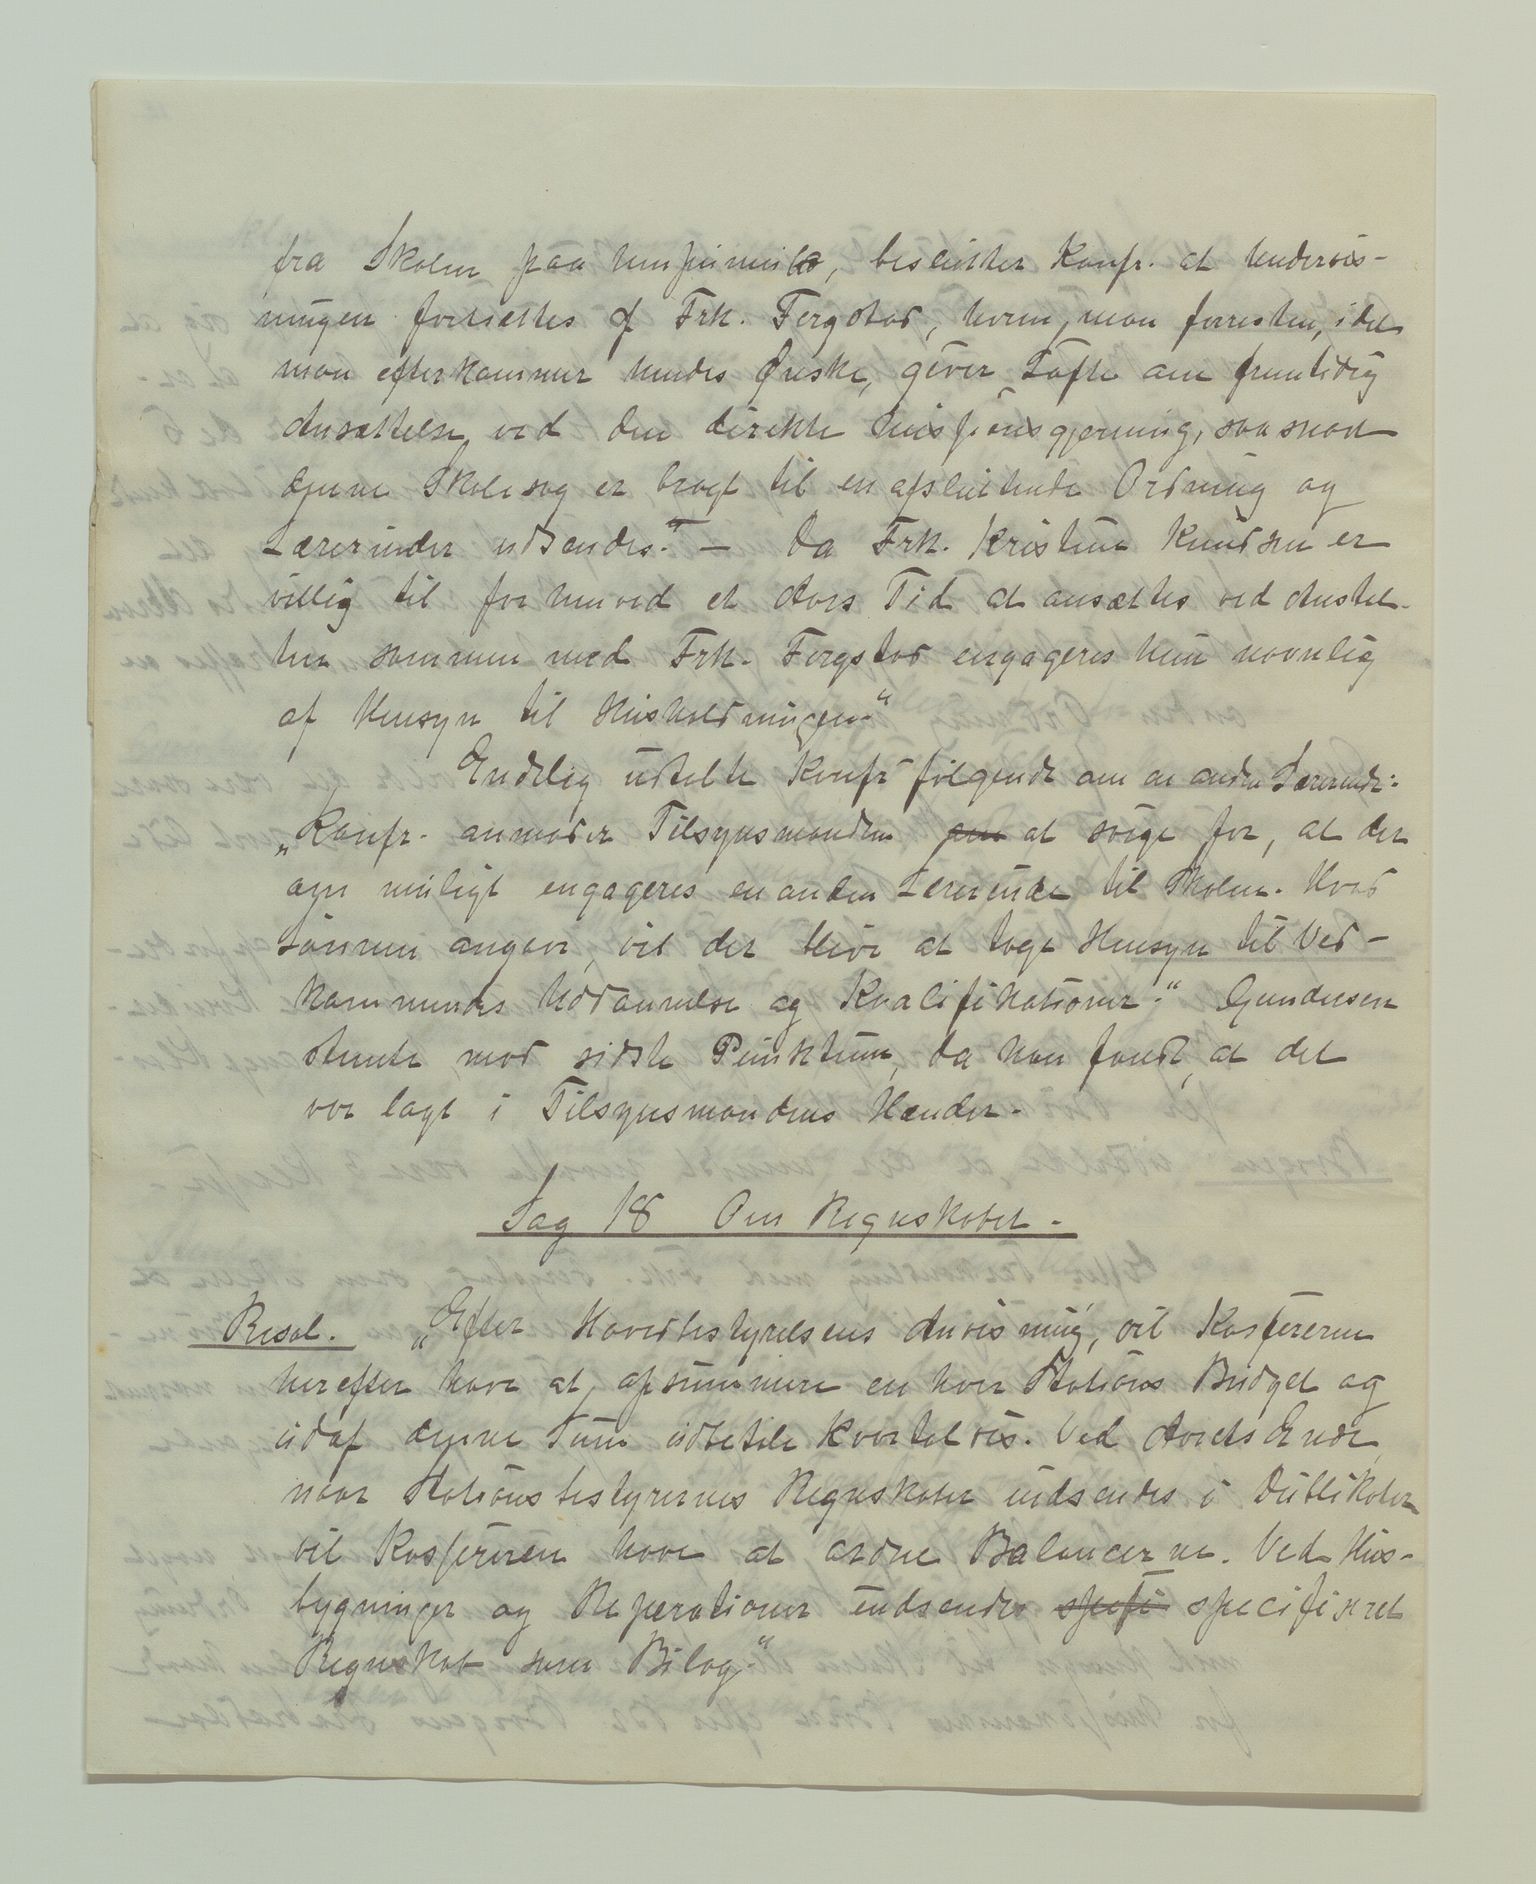 fra Skolen paa Umpumulo, beslutter Konfr. at Undervis-
ningen fortsættes af Frk. Fergstad, hvem, man forresten, idet
man efterkommer hendes Ønske, giver Løfte om fremtidig
Ansættelse ved den direkte Missionsgjerning, saasnart
denne Skolesag er bragt til en afsluttende Ordning og
Lærerinder udsendes." — Da Frk. Kristine Knudsen er
villig til for henved et Aars Tid at ansættes ved Anstal-
ten sammen med Frk. Fergstad engageres hun navnlig
af Hensyn til Husholdningen."
Endelig udtalte Konfr følgende om en anden Lærerinde:
„Konfr. anmoder Tilsynsmanden om at sørge for, at der
om muligt engageres en anden Lærerinde til Skolen. Hvad
Lønnen angaar, vil der blive at tage Hensyn til Ved-
kommendes Uddannelse og Kvalifikationer." Gundersen
stemte mod sidste Punktum, da han fandt, at det
var lagt i Tilsynsmandens Hænder.
Sag 18 Om Regnskabet.
Resol. „Efter Hovedbestyrelsens Anvisning, vil Kassereren
herefter have at opsummere en hver Stations Budget og
udaf denne Sum udbetale kvartalvis. Ved Aarets Ende,
naar Stationsbestyrernes Regnskaber indsendes i Dublikater
vil Kassereren have at ordne Balancerne. Ved Hus-
bygninger og Reparationer indsendes spefi specificeret
Regnskab som Bilag."